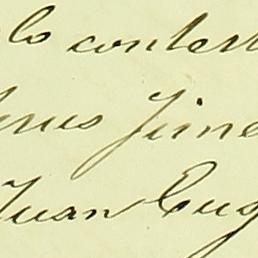 lo contest
Jime
Juan Eug